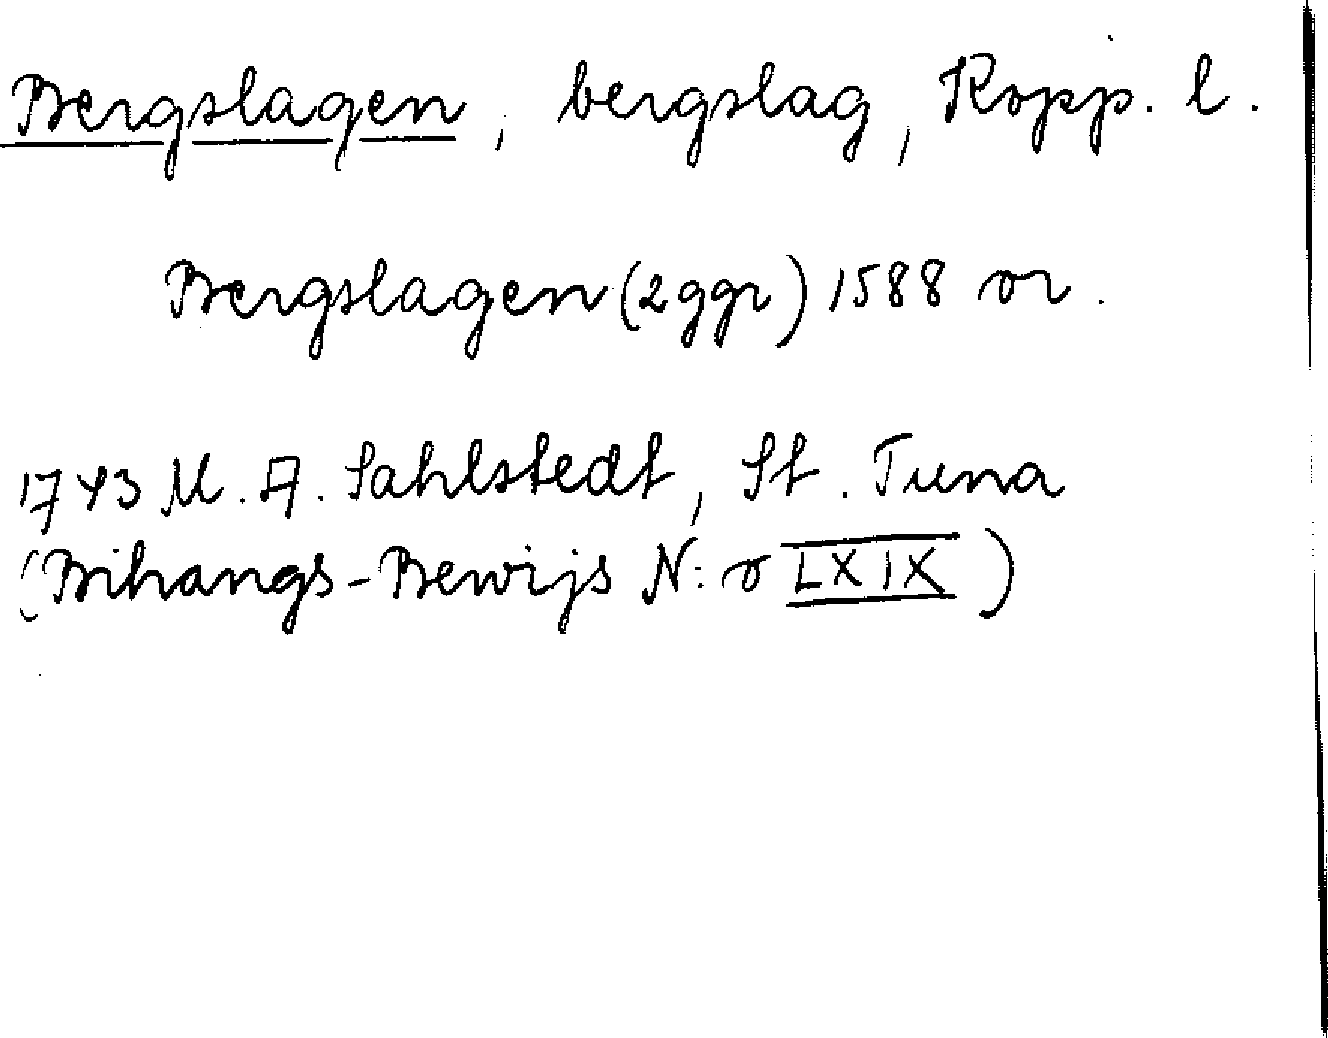 Bergslagen, bergslag, Kopp. l.
Bergslagen (2 ggr) 1588 or.
1743 M. A. Sahlstedt, St. Tuna
(Bihangs-Bewijs N:o LXIX)